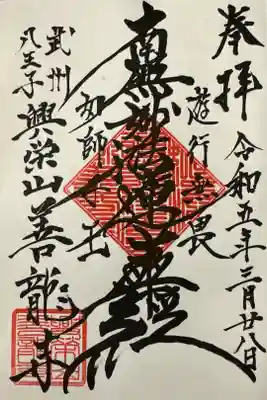 奉拝
令和五年三月廿八日
遊行無畏
南無妙法蓮華経
如師子王
武州
八王子
興栄山善龍寺